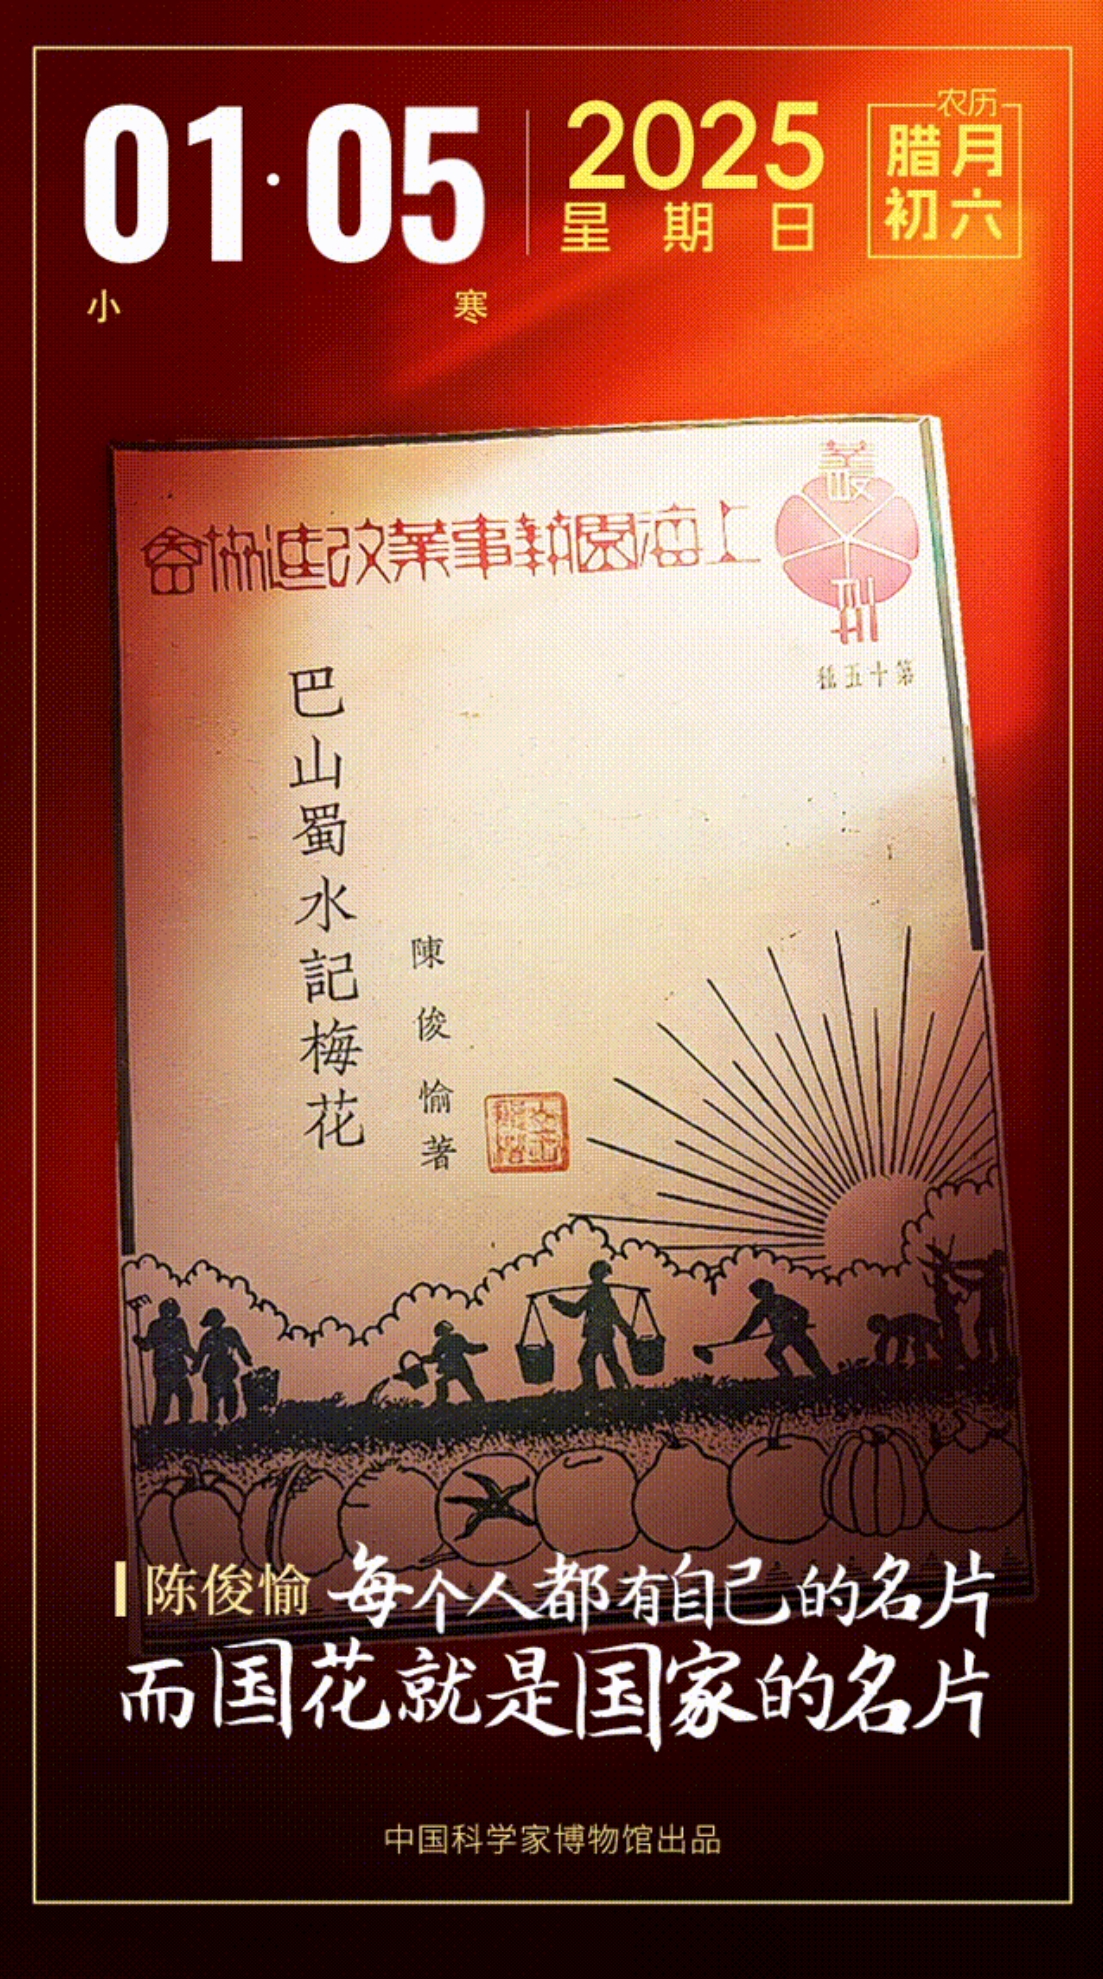 01·05
小寒
2025
星期日
农历
腊月
初六
叢刊
上海園藝事業改進協會
第十五種
巴山蜀水記梅花
陳俊愉著
陈俊愉 每个人都有自己的名片
而国花就是国家的名片
中国科学家博物馆出品